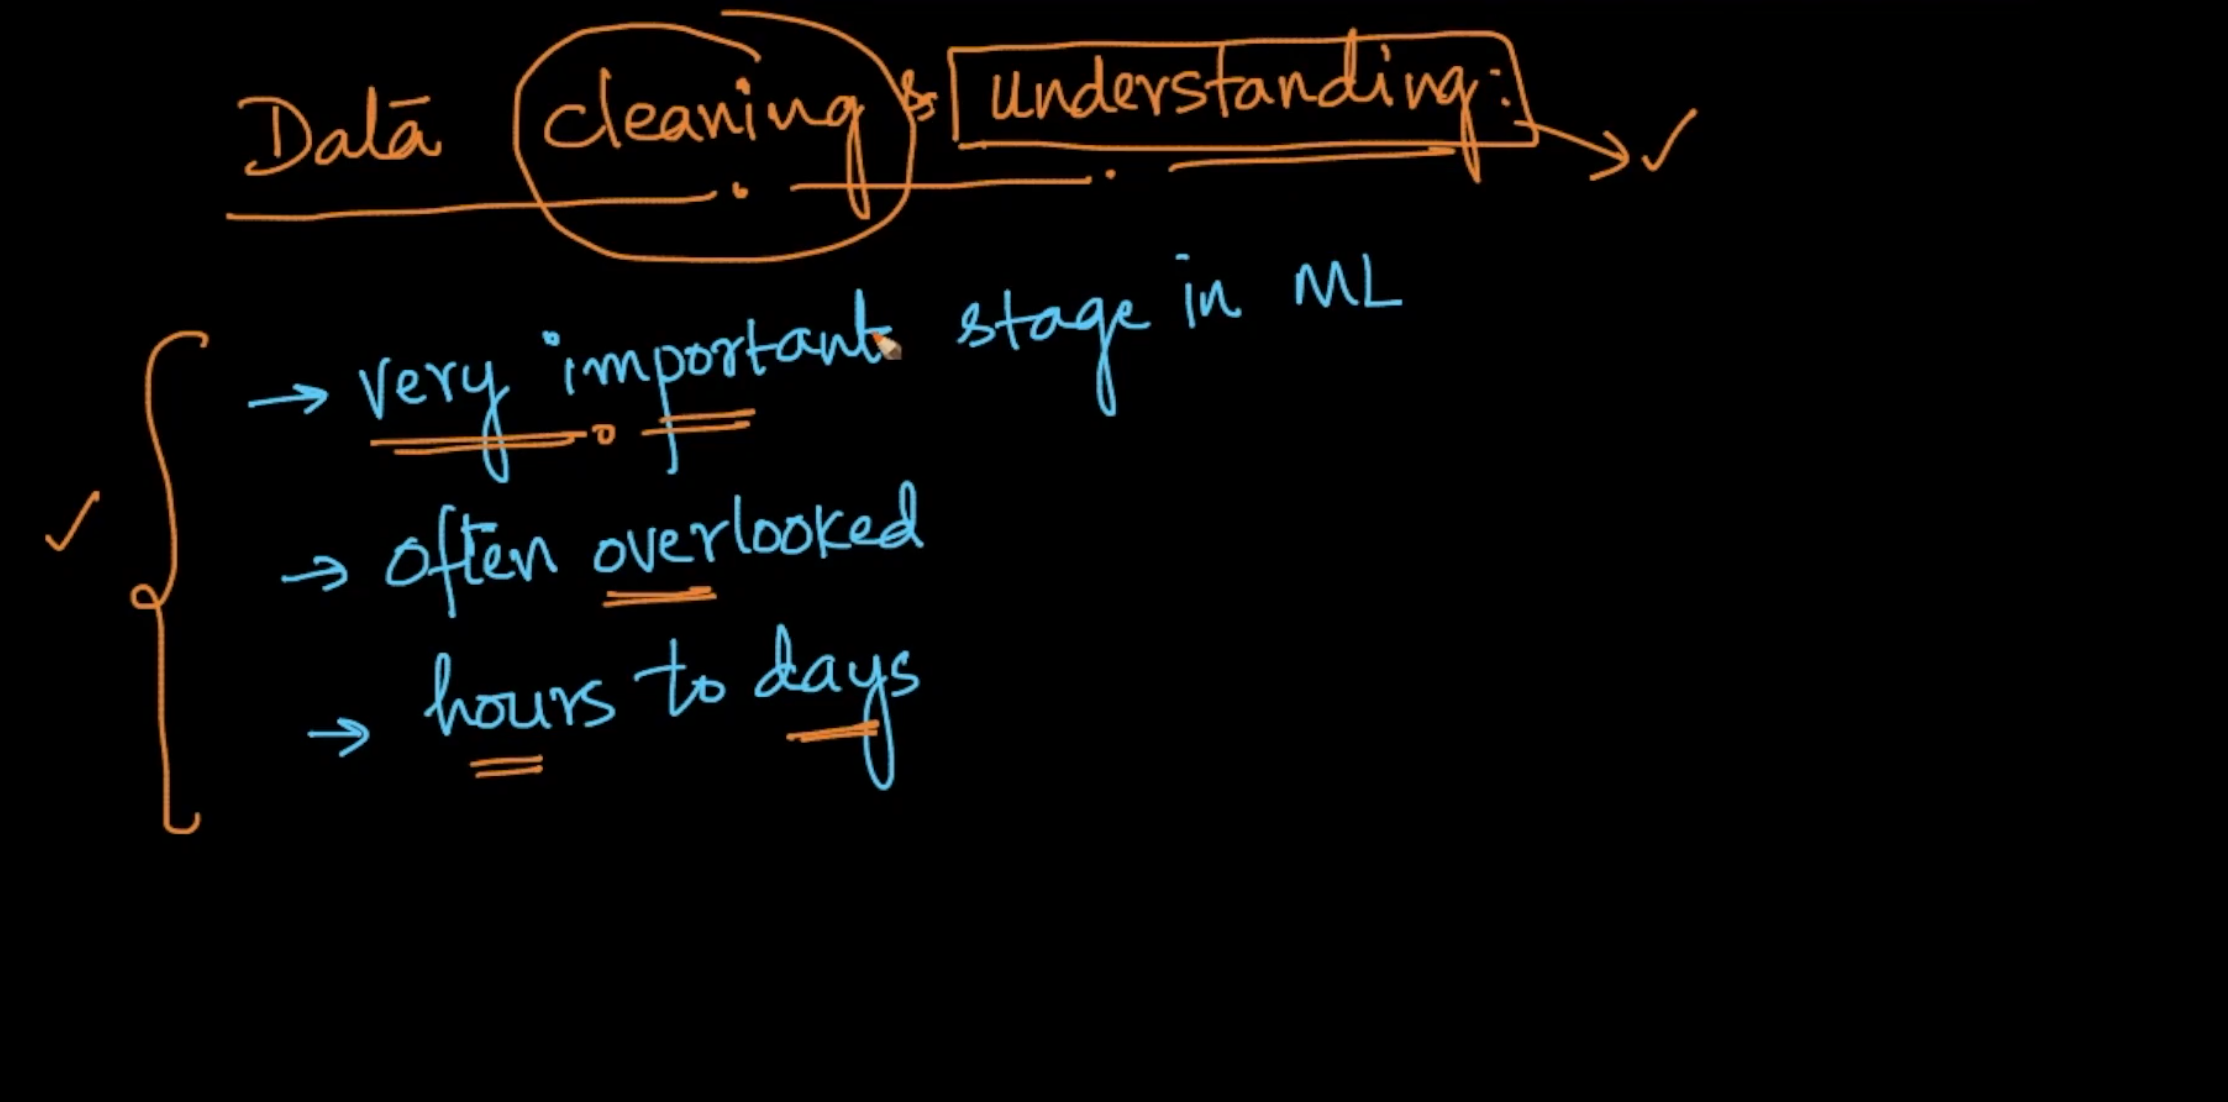 Data cleaning & understanding:
→ very important stage in ML
→ often overlooked
→ hours to days